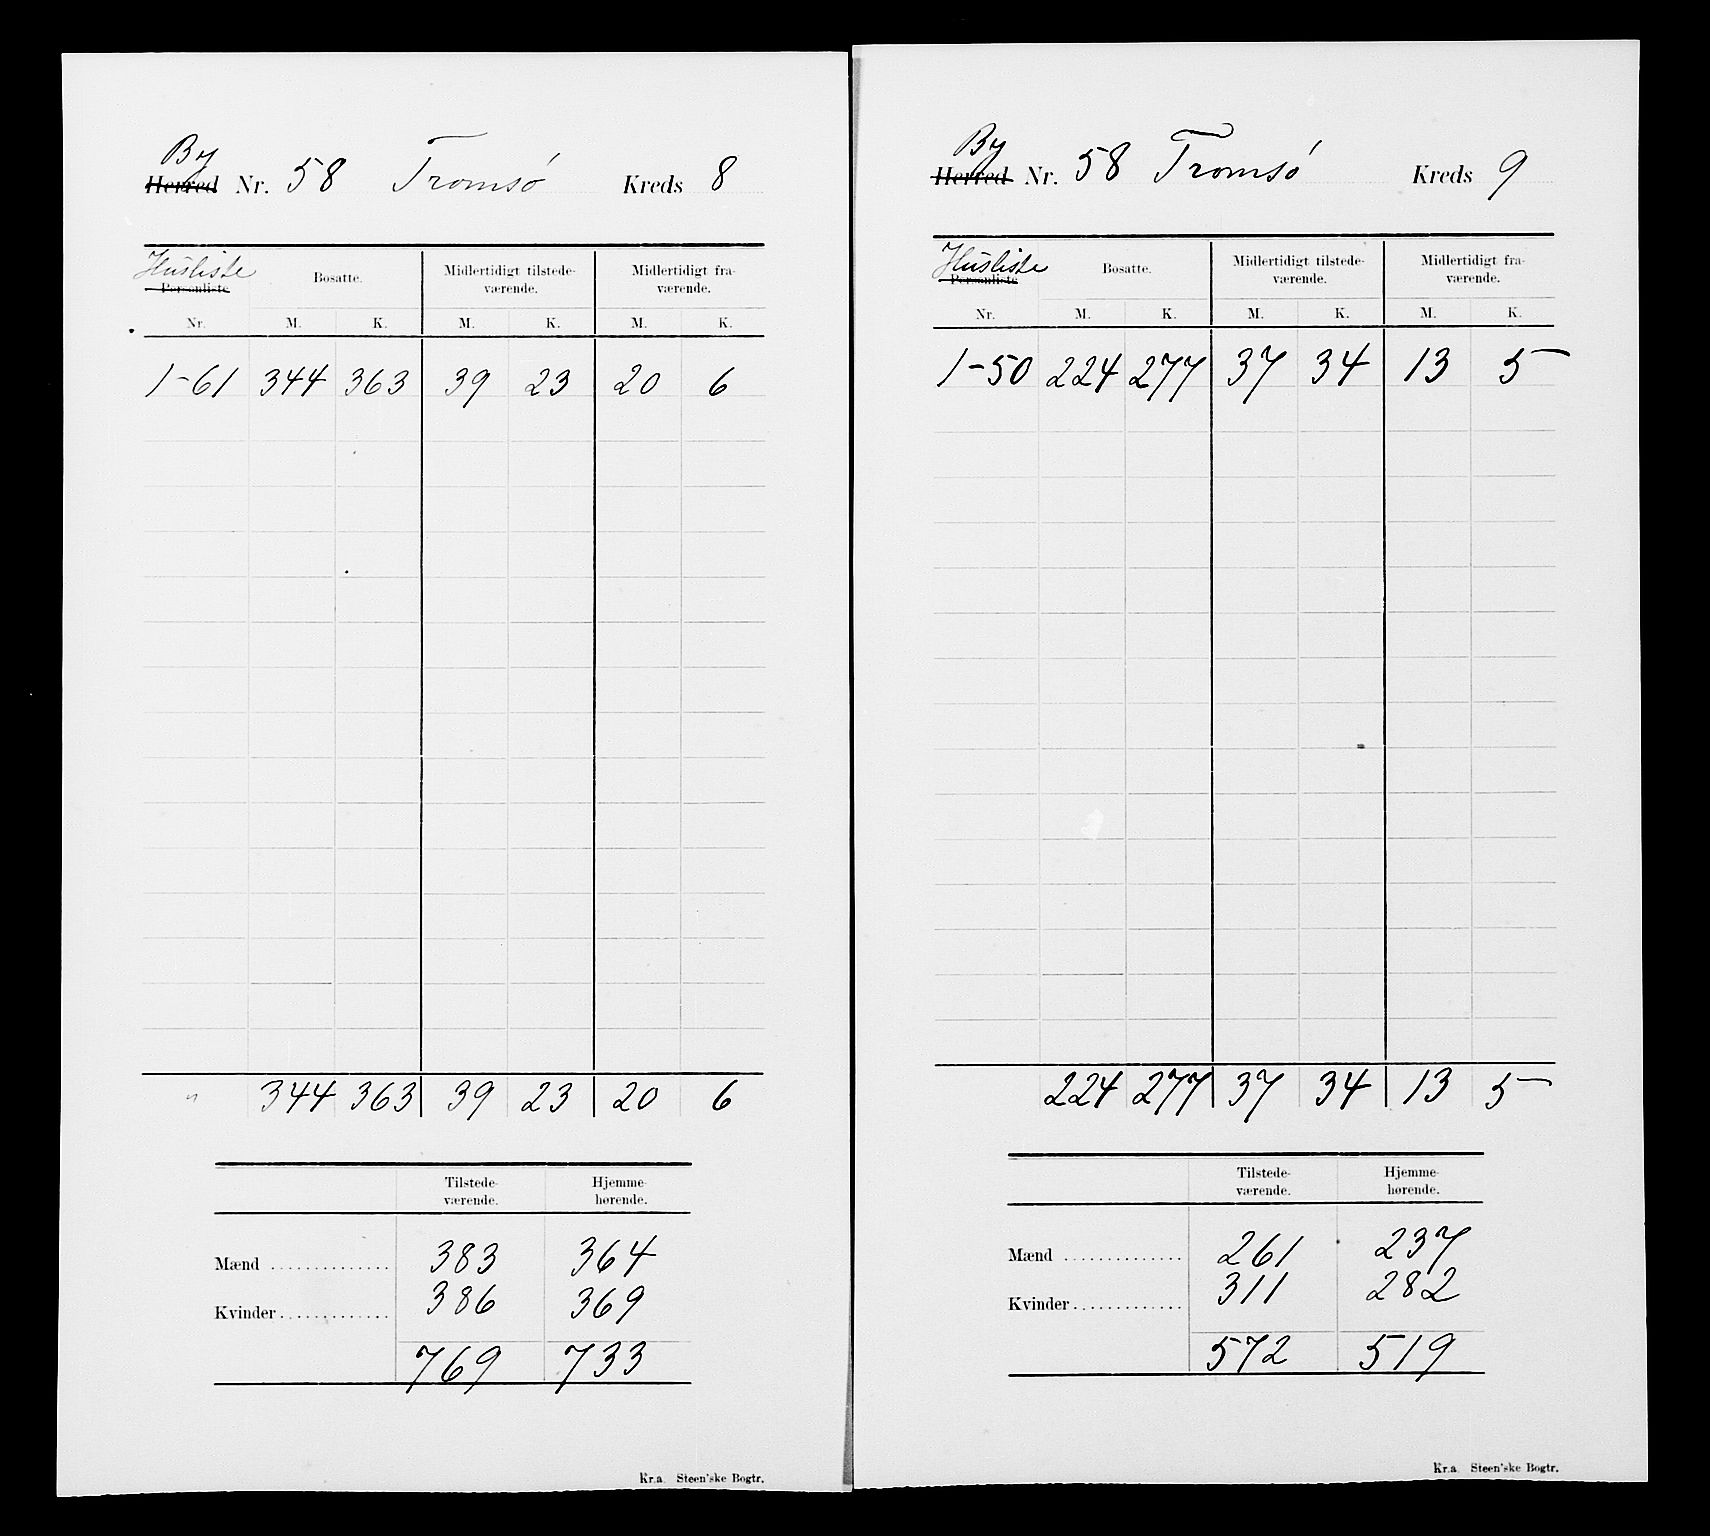 By
Herred Nr. 58 Tromsø Kreds 8
Husliste
Personliste Bosatte. Midlertidigt tilstede-værende. Midlertidigt fra-værende.
Nr. M. K. M. K. M. K.
1-61 344 363 39 23 20 6
" 344 363 39 23 20 6
Tilstede-værende. Hjemme-hørende.
Mænd .............. 383 364
Kvinder ............. 386 369
769 733
Kr.a. Steen'ske Bogtr.
By
Herred Nr. 58 Tromsø Kreds 9
Husliste
Personliste Bosatte. Midlertidigt tilstede-værende. Midlertidigt fra-værende.
Nr. M. K. M. K. M. K.
1-50 224 277 37 34 13 5
224 277 37 34 13 5
Tilstede-værende. Hjemme-hørende.
Mænd .............. 261 237
Kvinder ............. 311 282
572 519
Kr.a. Steen'ske Bogtr.